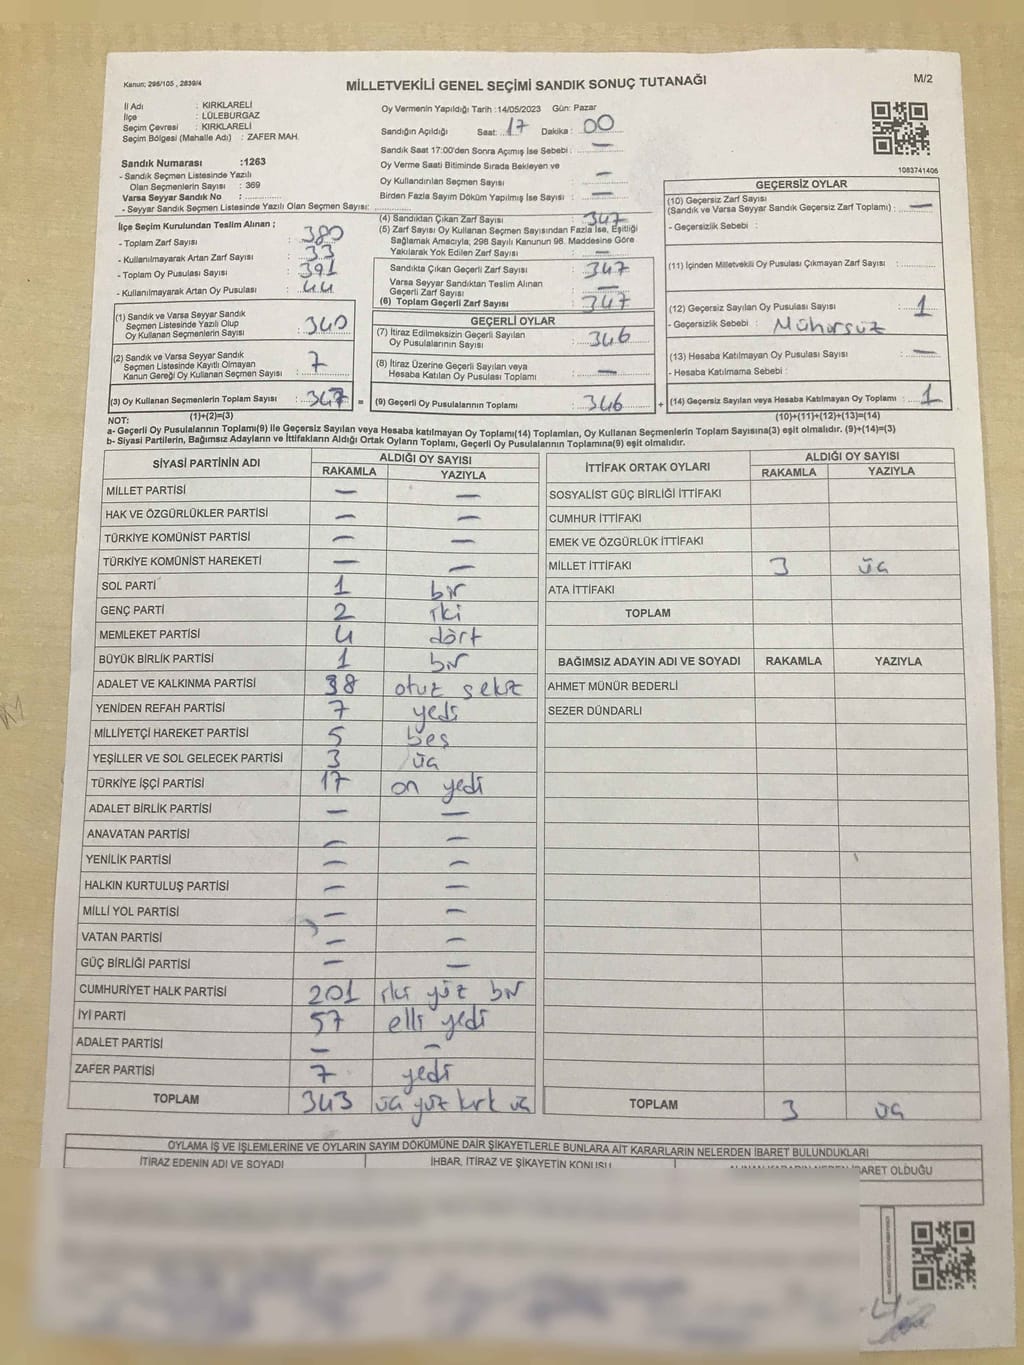 Kanun: 298/105 , 2839/4
MİLLETVEKİLİ GENEL SEÇİMİ SANDIK SONUÇ TUTANAĞI
M/2
İl Adı : KIRKLARELİ
İlçe : LÜLEBURGAZ
Seçim Çevresi : KIRKLARELİ
Seçim Bölgesi (Mahalle Adı) : ZAFER MAH.
Sandık Numarası :1263
- Sandık Seçmen Listesinde Yazılı
Olan Seçmenlerin Sayısı : 369
Varsa Seyyar Sandık No : ..............
- Seyyar Sandık Seçmen Listesinde Yazılı Olan Seçmen Sayısı: ..............
Oy Vermenin Yapıldığı Tarih :14/05/2023 Gün: Pazar
Sandığın Açıldığı Saat: 17 Dakika : 00
Sandık Saat 17:00'den Sonra Açımış İse Sebebi : —
Oy Verme Saati Bitiminde Sırada Bekleyen ve
Oy Kullandırılan Seçmen Sayısı : —
Birden Fazla Sayım Döküm Yapılmış İse Sayısı : —
1083741406
İlçe Seçim Kurulundan Teslim Alınan ;
- Toplam Zarf Sayısı : 380
- Kullanılmayarak Artan Zarf Sayısı : 33
- Toplam Oy Pusulası Sayısı : 391
- Kullanılmayarak Artan Oy Pusulası : 44
(1) Sandık ve Varsa Seyyar Sandık
Seçmen Listesinde Yazılı Olup
Oy Kullanan Seçmenlerin Sayısı : 340
(2) Sandık ve Varsa Seyyar Sandık
Seçmen Listesinde Kayıtlı Olmayan
Kanun Gereği Oy Kullanan Seçmen Sayısı : 7
(3) Oy Kullanan Seçmenlerin Toplam Sayısı : 347 =
(1)+(2)=(3)
(4) Sandıktan Çıkan Zarf Sayısı : 347
(5) Zarf Sayısı Oy Kullanan Seçmen Sayısından Fazla İse, Eşitliği
Sağlamak Amacıyla; 298 Sayılı Kanunun 98. Maddesine Göre
Yakılarak Yok Edilen Zarf Sayısı : —
Sandıkta Çıkan Geçerli Zarf Sayısı : 347
Varsa Seyyar Sandıktan Teslim Alınan
Geçerli Zarf Sayısı : —
(6) Toplam Geçerli Zarf Sayısı : 347
GEÇERLİ OYLAR
(7) İtiraz Edilmeksizin Geçerli Sayılan
Oy Pusulalarının Sayısı : 346
(8) İtiraz Üzerine Geçerli Sayılan veya
Hesaba Katılan Oy Pusulası Toplamı : —
(9) Geçerli Oy Pusulalarının Toplamı : 346 +
GEÇERSİZ OYLAR
(10) Geçersiz Zarf Sayısı
(Sandık ve Varsa Seyyar Sandık Geçersiz Zarf Toplamı) : —
- Geçersizlik Sebebi :
(11) İçinden Milletvekili Oy Pusulası Çıkmayan Zarf Sayısı : ..............
(12) Geçersiz Sayılan Oy Pusulası Sayısı : 1
- Geçersizlik Sebebi : Mühürsüz
(13) Hesaba Katılmayan Oy Pusulası Sayısı : —
- Hesaba Katılmama Sebebi :
(14) Geçersiz Sayılan veya Hesaba Katılmayan Oy Toplamı : 1
(10)+(11)+(12)+(13)=(14)
NOT:
a- Geçerli Oy Pusulalarının Toplamı(9) ile Geçersiz Sayılan veya Hesaba katılmayan Oy Toplamı(14) Toplamları, Oy Kullanan Seçmenlerin Toplam Sayısına(3) eşit olmalıdır. (9)+(14)=(3)
b- Siyasi Partilerin, Bağımsız Adayların ve İttifakların Aldığı Ortak Oyların Toplamı, Geçerli Oy Pusulalarının Toplamına(9) eşit olmalıdır.
SİYASİ PARTİNİN ADI ALDIĞI OY SAYISI
RAKAMLA YAZIYLA
MİLLET PARTİSİ — —
HAK VE ÖZGÜRLÜKLER PARTİSİ — —
TÜRKİYE KOMÜNİST PARTİSİ — —
TÜRKİYE KOMÜNİST HAREKETİ — —
SOL PARTİ 1 bir
GENÇ PARTİ 2 iki
MEMLEKET PARTİSİ 4 dört
BÜYÜK BİRLİK PARTİSİ 1 bir
ADALET VE KALKINMA PARTİSİ 38 otuz sekiz
YENİDEN REFAH PARTİSİ 7 yedi
MİLLİYETÇİ HAREKET PARTİSİ 5 beş
YEŞİLLER VE SOL GELECEK PARTİSİ 3 üç
TÜRKİYE İŞÇİ PARTİSİ 17 on yedi
ADALET BİRLİK PARTİSİ — —
ANAVATAN PARTİSİ — —
YENİLİK PARTİSİ — —
HALKIN KURTULUŞ PARTİSİ — —
MİLLİ YOL PARTİSİ — —
VATAN PARTİSİ — —
GÜÇ BİRLİĞİ PARTİSİ — —
CUMHURİYET HALK PARTİSİ 201 iki yüz bir
İYİ PARTİ 57 elli yedi
ADALET PARTİSİ — —
ZAFER PARTİSİ 7 yedi
TOPLAM 343 üç yüz kırk üç
İTTİFAK ORTAK OYLARI ALDIĞI OY SAYISI
RAKAMLA YAZIYLA
SOSYALİST GÜÇ BİRLİĞİ İTTİFAKI
CUMHUR İTTİFAKI
EMEK VE ÖZGÜRLÜK İTTİFAKI
MİLLET İTTİFAKI 3 üç
ATA İTTİFAKI
TOPLAM
BAĞIMSIZ ADAYIN ADI VE SOYADI RAKAMLA YAZIYLA
AHMET MÜNÜR BEDERLİ
SEZER DÜNDARLI
TOPLAM 3 üç
OYLAMA İŞ VE İŞLEMLERİNE VE OYLARIN SAYIM DÖKÜMÜNE DAİR ŞİKAYETLERLE BUNLARA AİT KARARLARIN NELERDEN İBARET BULUNDUKLARI
İTİRAZ EDENİN ADI VE SOYADI İHBAR, İTİRAZ VE ŞİKAYETİN KONUSU İBARET OLDUĞU